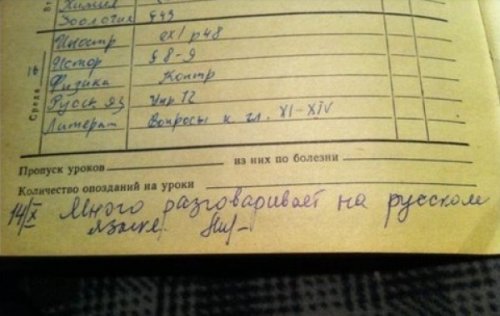 Химия
Зоология §43
Иностр ex 1 p 48
Истор § 8-9
Среда
Физика Контр
Русск яз Упр 12
Литерат Вопросы к гл. XI-XIV
Пропуск уроков из них по болезни
Количество опозданий на уроки
14/X Много разговаривает на русском
языке.